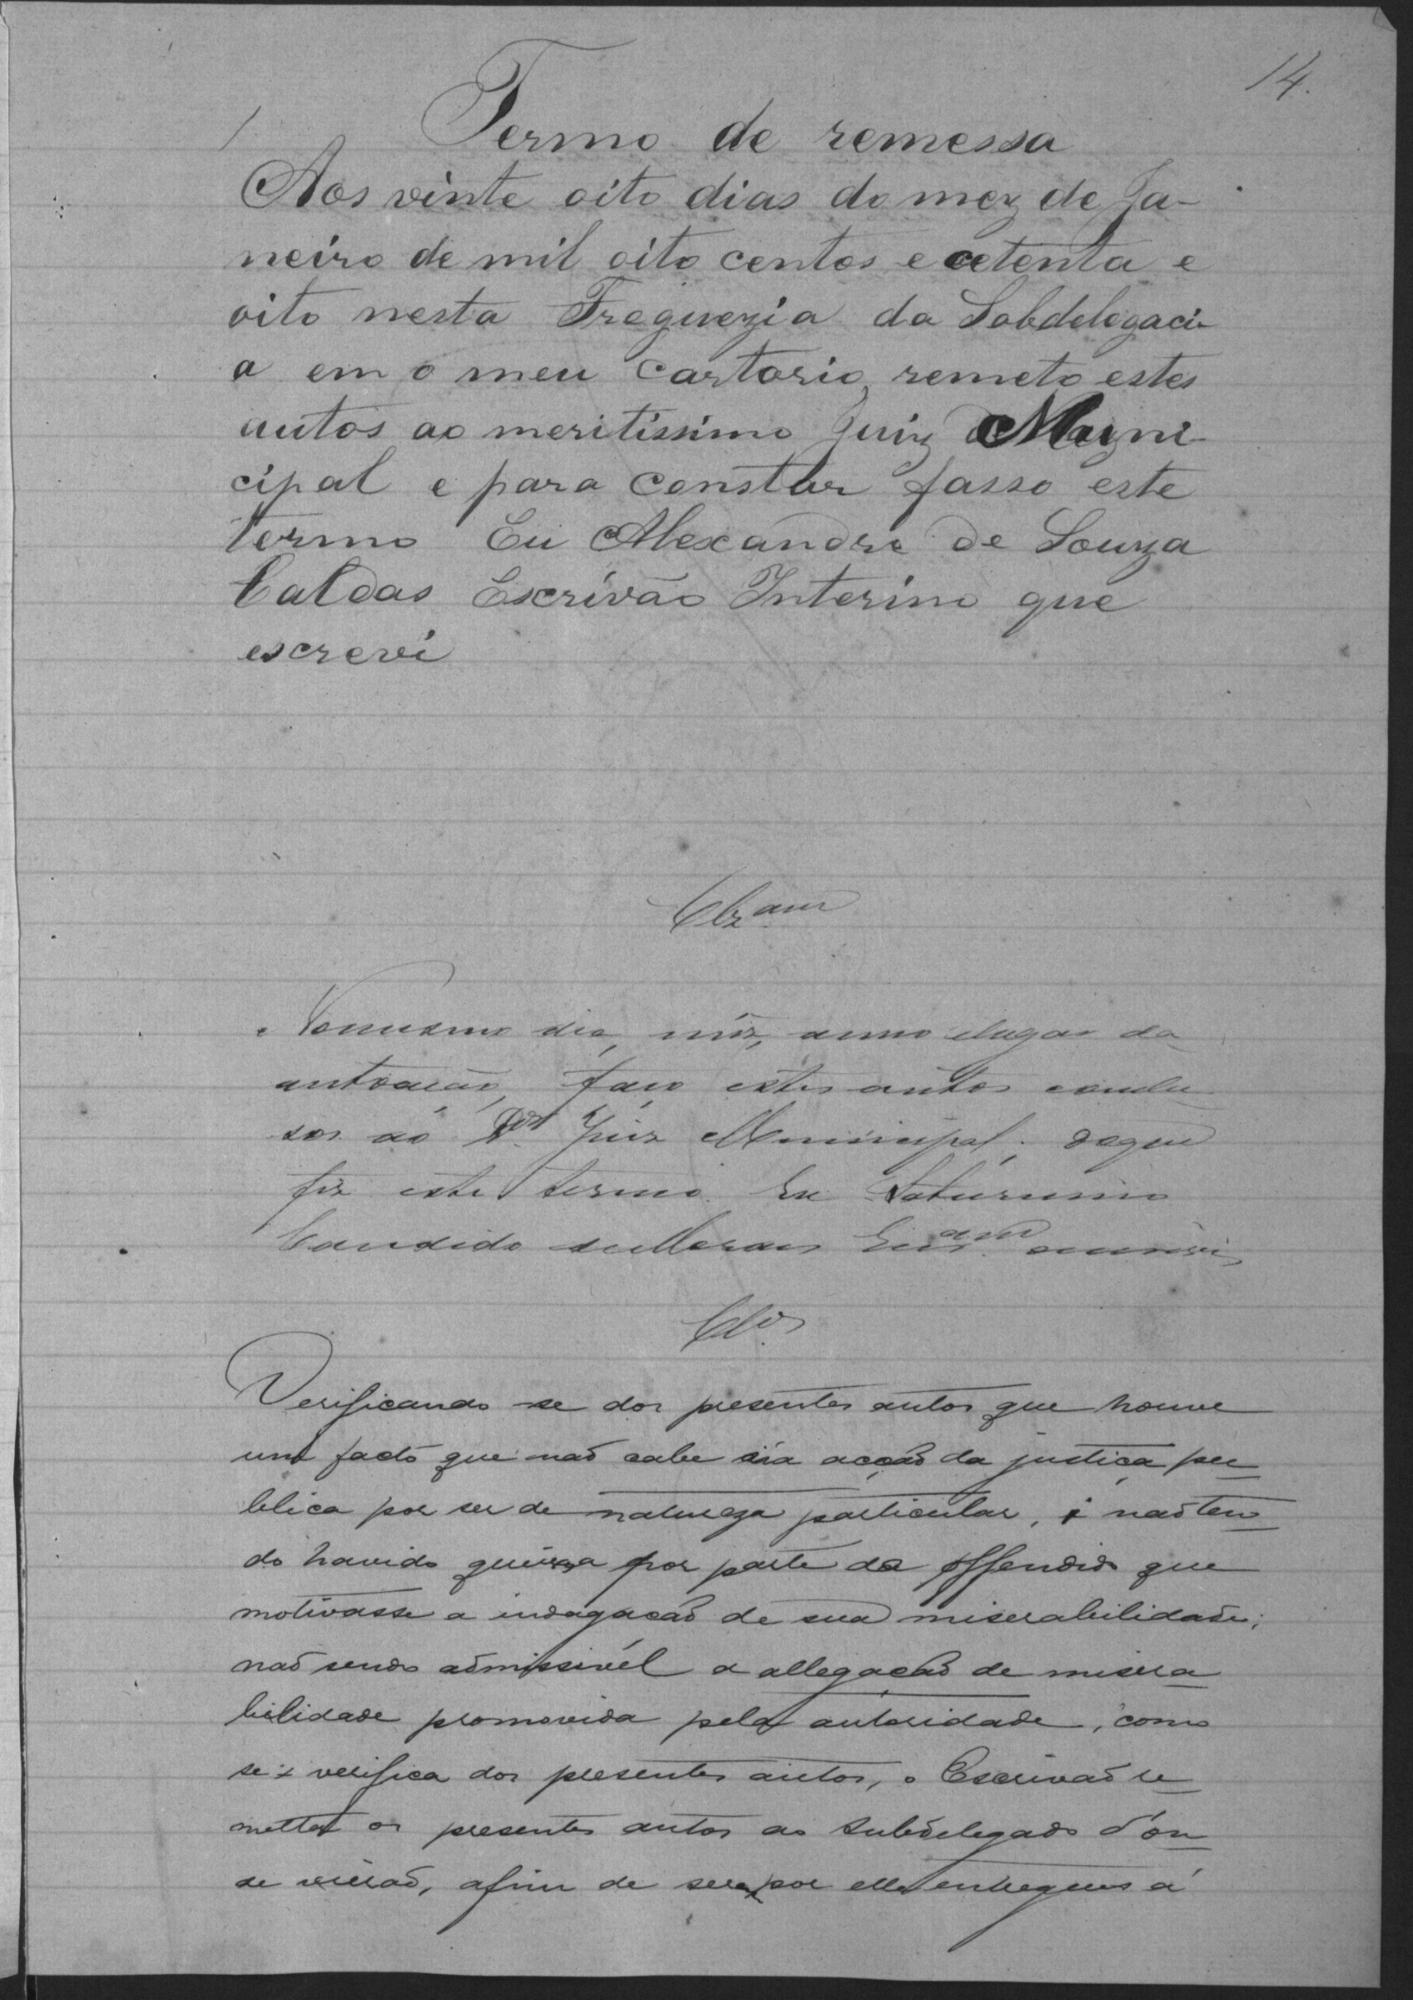 14.
Termo de remessa
Aos vinte oito dias do mez de Ja-
neiro de mil oito centos e cetenta e
oito nesta Freguezia da Sobdelegaci-
a em o meu Cartorio, remeto estes
autos ao meritissimo Juiz Muni-
cipal e para constar fasso este
termo Eu Alexandre de Souza
Caldas Escrivão Interino que
escrevi
Clzam
No mesmo dia, mêz, anno elugar da
autoacão, faço estes autos conclu
sos ao Dr Juiz Municipal; doque
fiz este termo. Eu Saturnino
Candido de Moraes Escram oescrevi
Clos
Verificando-se dos presentes autos que houve
um facto que não cabe na acção da justiça pu
blica por ser de natureza particular, e não ten
do havido queixa por parte do offendido que
motivasse a indagacão de sua miserabilidade;
não sendo admissivel a allegacão de misera
bilidade promovida pela autoridade, como
se verifica dos presentes autos, o Escrivão re
metta os presentes autos ao Subdelegado d'on
de vierão, afim de ser por elle entregues á